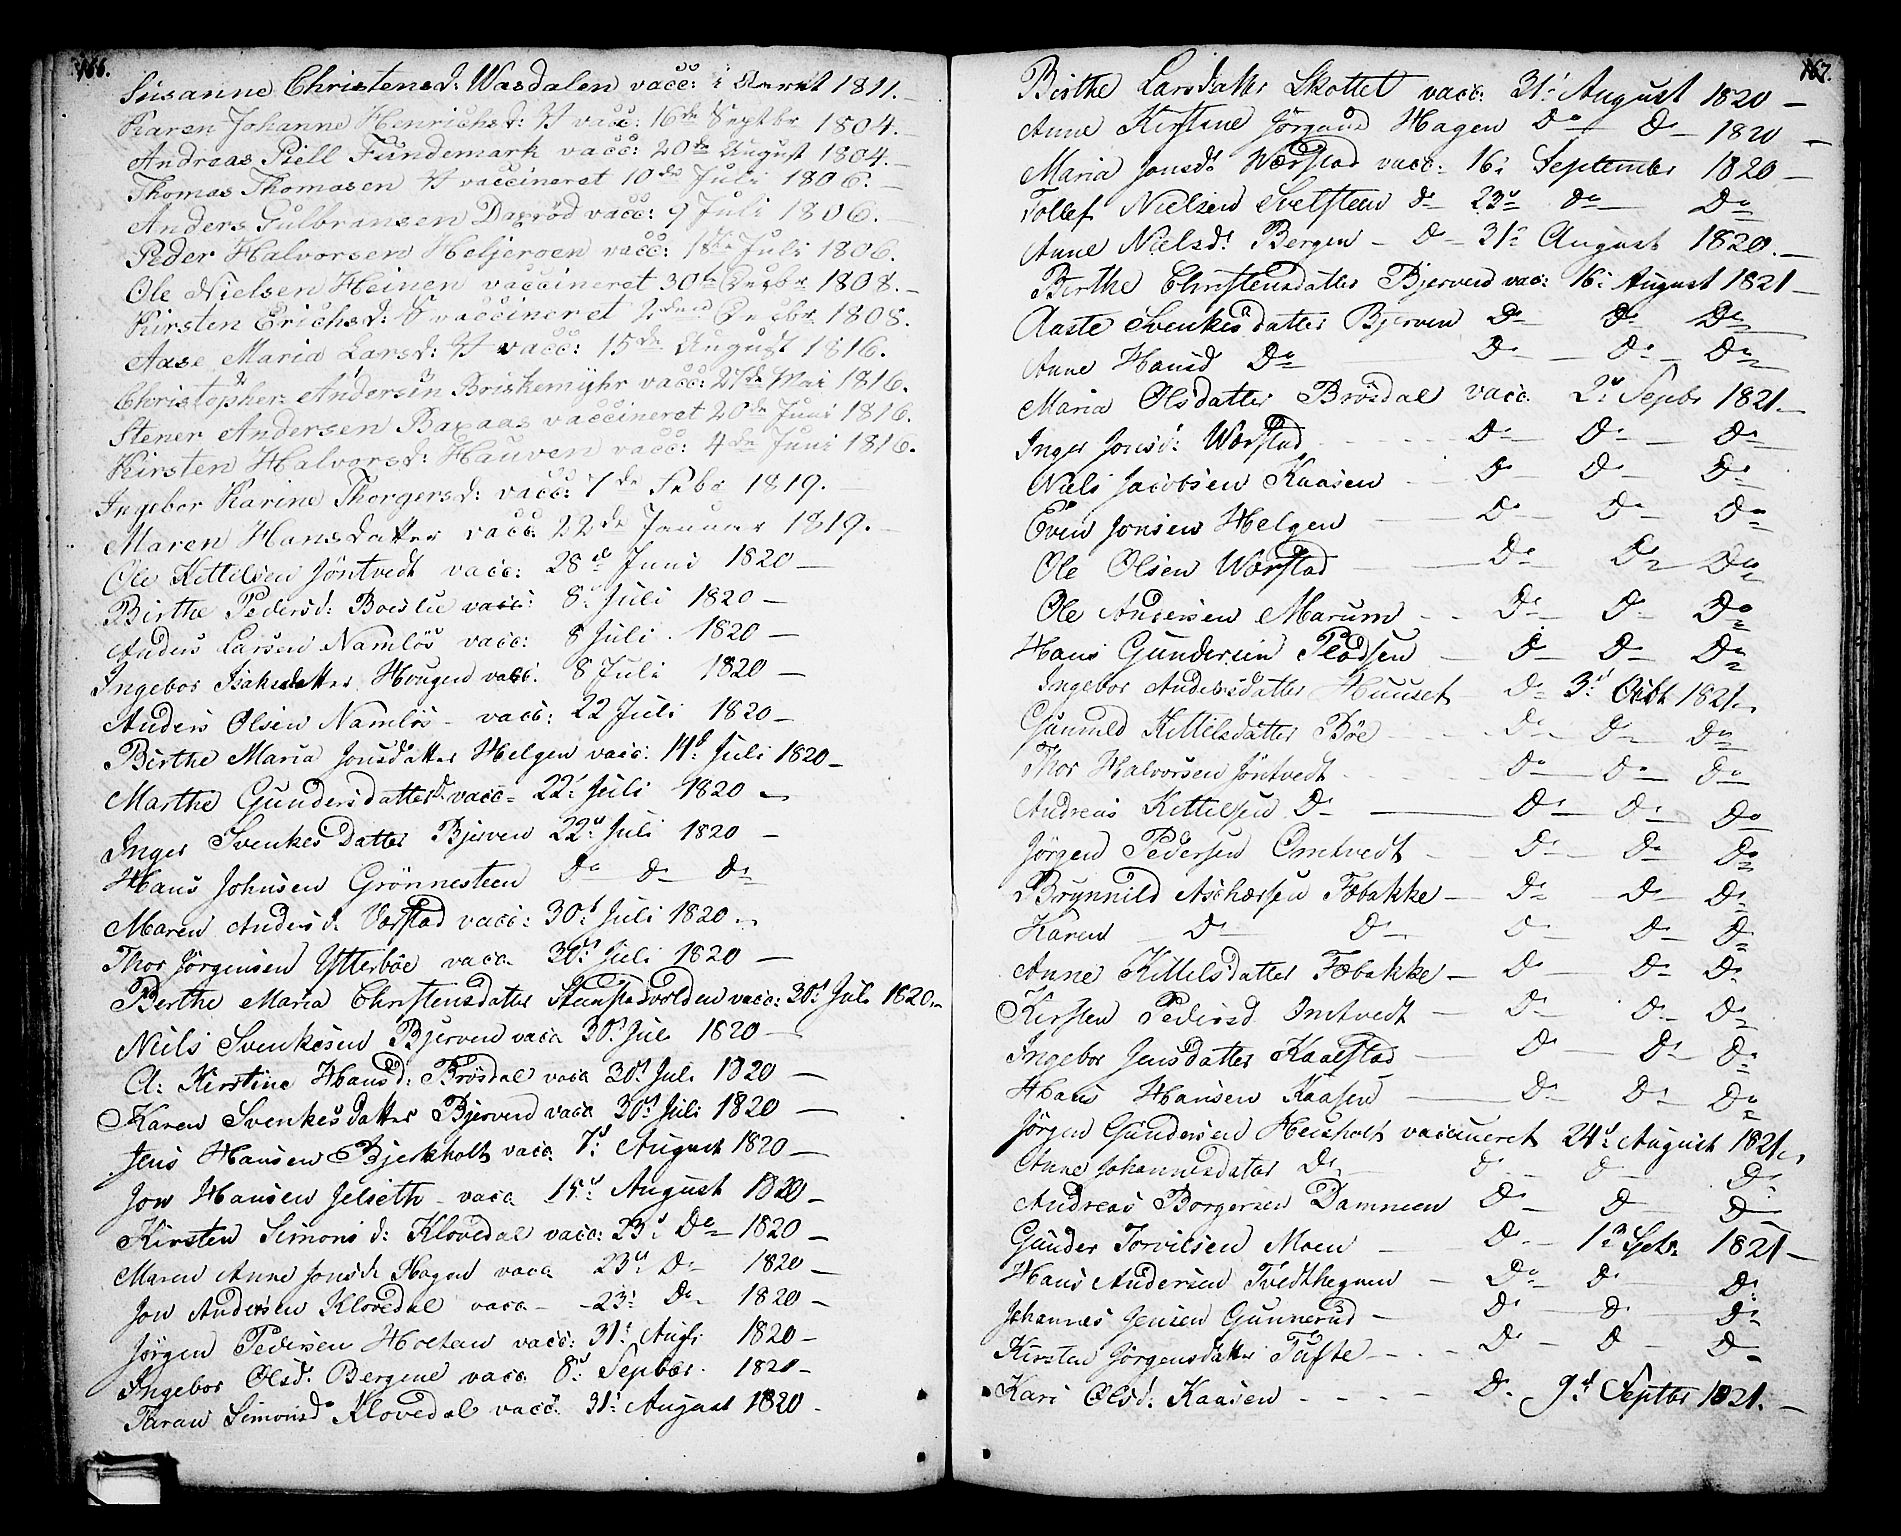 166.
Susanne Christensd: Wasdalen vacc: i 1811.
Karen Johanne Henrichsd: vacc: 16de Septbr 1804.
Andreas Piell Fundemark vacc: 20de August 1804.
Thomas Thomasen vaccineret 10de Juli 1806.
Anders Gulbransen vacc: 9 Juli 1806.
Peder Halvorsen Heljeroen vacc: 18de Juli 1806.
Ole Nielsen Heinen vaccineret 30te 1808.
Kirsten Erichsd: vaccineret 1808.
Aase Maria Larsd: vacc: 15de August 1816.
Christopher Andersen Briskemyhr vacc: 27de Mai 1816.
Stener Andersen Baxaas vaccineret 20de Juni 1816.
Kirsten Halvorsd: Hauven vacc: 4de Juni 1816.
Ingebor Karine Thorgersd: vacc: 7de Febr 1819.
Maren Hansdatter vacc 22de Januar 1819.
Ole Kittilsen Jöntvedt vacc: 28d Juni 1820 —
Birthe Pedersd: Boeslie vacc: 8d Juli 1820 —
Anders Larsen Namlös vacc: 8 Juli 1820 —
Ingebor Isaksdatter Hougen vacc: 8 Juli 1820 —
Anders Olsen Namlös - vacc: 22 Juli 1820 —
Birthe Maria Jonsdatter Helgen vacc: 14d Juli 1820 —
Marthe Gundersdatter vacc 22d Juli 1820 —
Inger Svenkesdatter Bjerven 22d Juli 1820 —
Hans Johnsen Grönnesteen Do Do Do
Maren Andersd. Værstad vacc: 30d Juli 1820 —
Thor Jörgensen Ytterböe vacc 30d Juli 1820 —
Berthe Maria Christensdatter Steenstadvolden vacc: 30d Juli 1820 —
Niels Svenkesen Bjerven vacc 30d Jul 1820 —
A: Kirstine Hansd: Brösdal vacc 30d Juli 1820 —
Karen Svenkesdatter Bjerven vacc 30d Juli 1820 —
Jens Hansen Bjerkholt vacc 7d August 1820 —
Jon Hansen Jelseth - vacc 15d August 1820 —
Kirsten Simonsd: Klovedal vacc: 23d Do 1820 —
Maren Anne Jonsd: Hagen vacc 23d Do 1820 —
Jon Andersen Klovedal vacc — 23d Do 1820 —
Jörgen Pedersen Hoetan vacc: 31d Augs 1820 —
Ingebor Olsd: Bergene vacc 8d Sepber. 1820 —
Taran Simonsd Klovedal vacc 31d August 1820 -
167.
Birthe Larsdatter Skottet vacc: 31d August 1820 —
Anne Kirstine Jörgensd Hagen Do Do 1820 —
Maria Jonsd: Værstad vacc: 16d September 1820 —
Tollef Nielsen Svelsteen Do 23d Do Do
Anne Nielsd: Bergen — Do — 31d August 1820. —
Birthe Christensdatter Bjerven vac: 16d August 1821 —
Aaste Svenkesdatter Bjerven Do Do Do
Anne Hansd Do Do Do Do
Maria Olsdatter Brösdal vacc 2d Sepbr 1821 —
Inger Jonsd: Wærstad Do Do Do
Niels Jacobsen Kaasen Do Do Do
Even Jonsen Helgen Do Do Do
Ole Olsen Wærstad Do Do Do
Ole Andersen Marum Do Do Do
Hans Gundersen Pladsen Do Do Do
Ingebor Andersdatter Huuset Do 3d Octbr 1821
Gunnild Kittilsdatter Böe Do Do Do
Thor Halvorsen Jöntvedt Do Do Do
Andreas Kittelsen Do Do Do Do
Jörgen Pedersen Omtvedt Do Do Do
Brynnild Aschersen Fæbakke Do Do Do
Karen Do Do Do Do Do
Anne Kittelsdatter Fæbakke Do Do Do
Kirsten Pedersd Omtvedt Do Do Do
Ingebor Jensdatter Kaalstad Do Do Do
Hans Hansen Kaasen Do Do Do
Jörgen Gundersen Heisholt vaccineret 24d August 1821
Anne Johannesdatter Do Do Do Do
Andreas Borgersen Dammeen Do Do Do
Gunder Torvilsen Moen Do 13 Septr 1821 —
Hans Andersen Tvedthegnen Do Do Do
Johannes Jensen Gunnerud Do Do Do
Kirsten Jörgensdatter Tufte Do Do Do
Kari Olsd: Kaasen Do 9d Septbr 1821. —